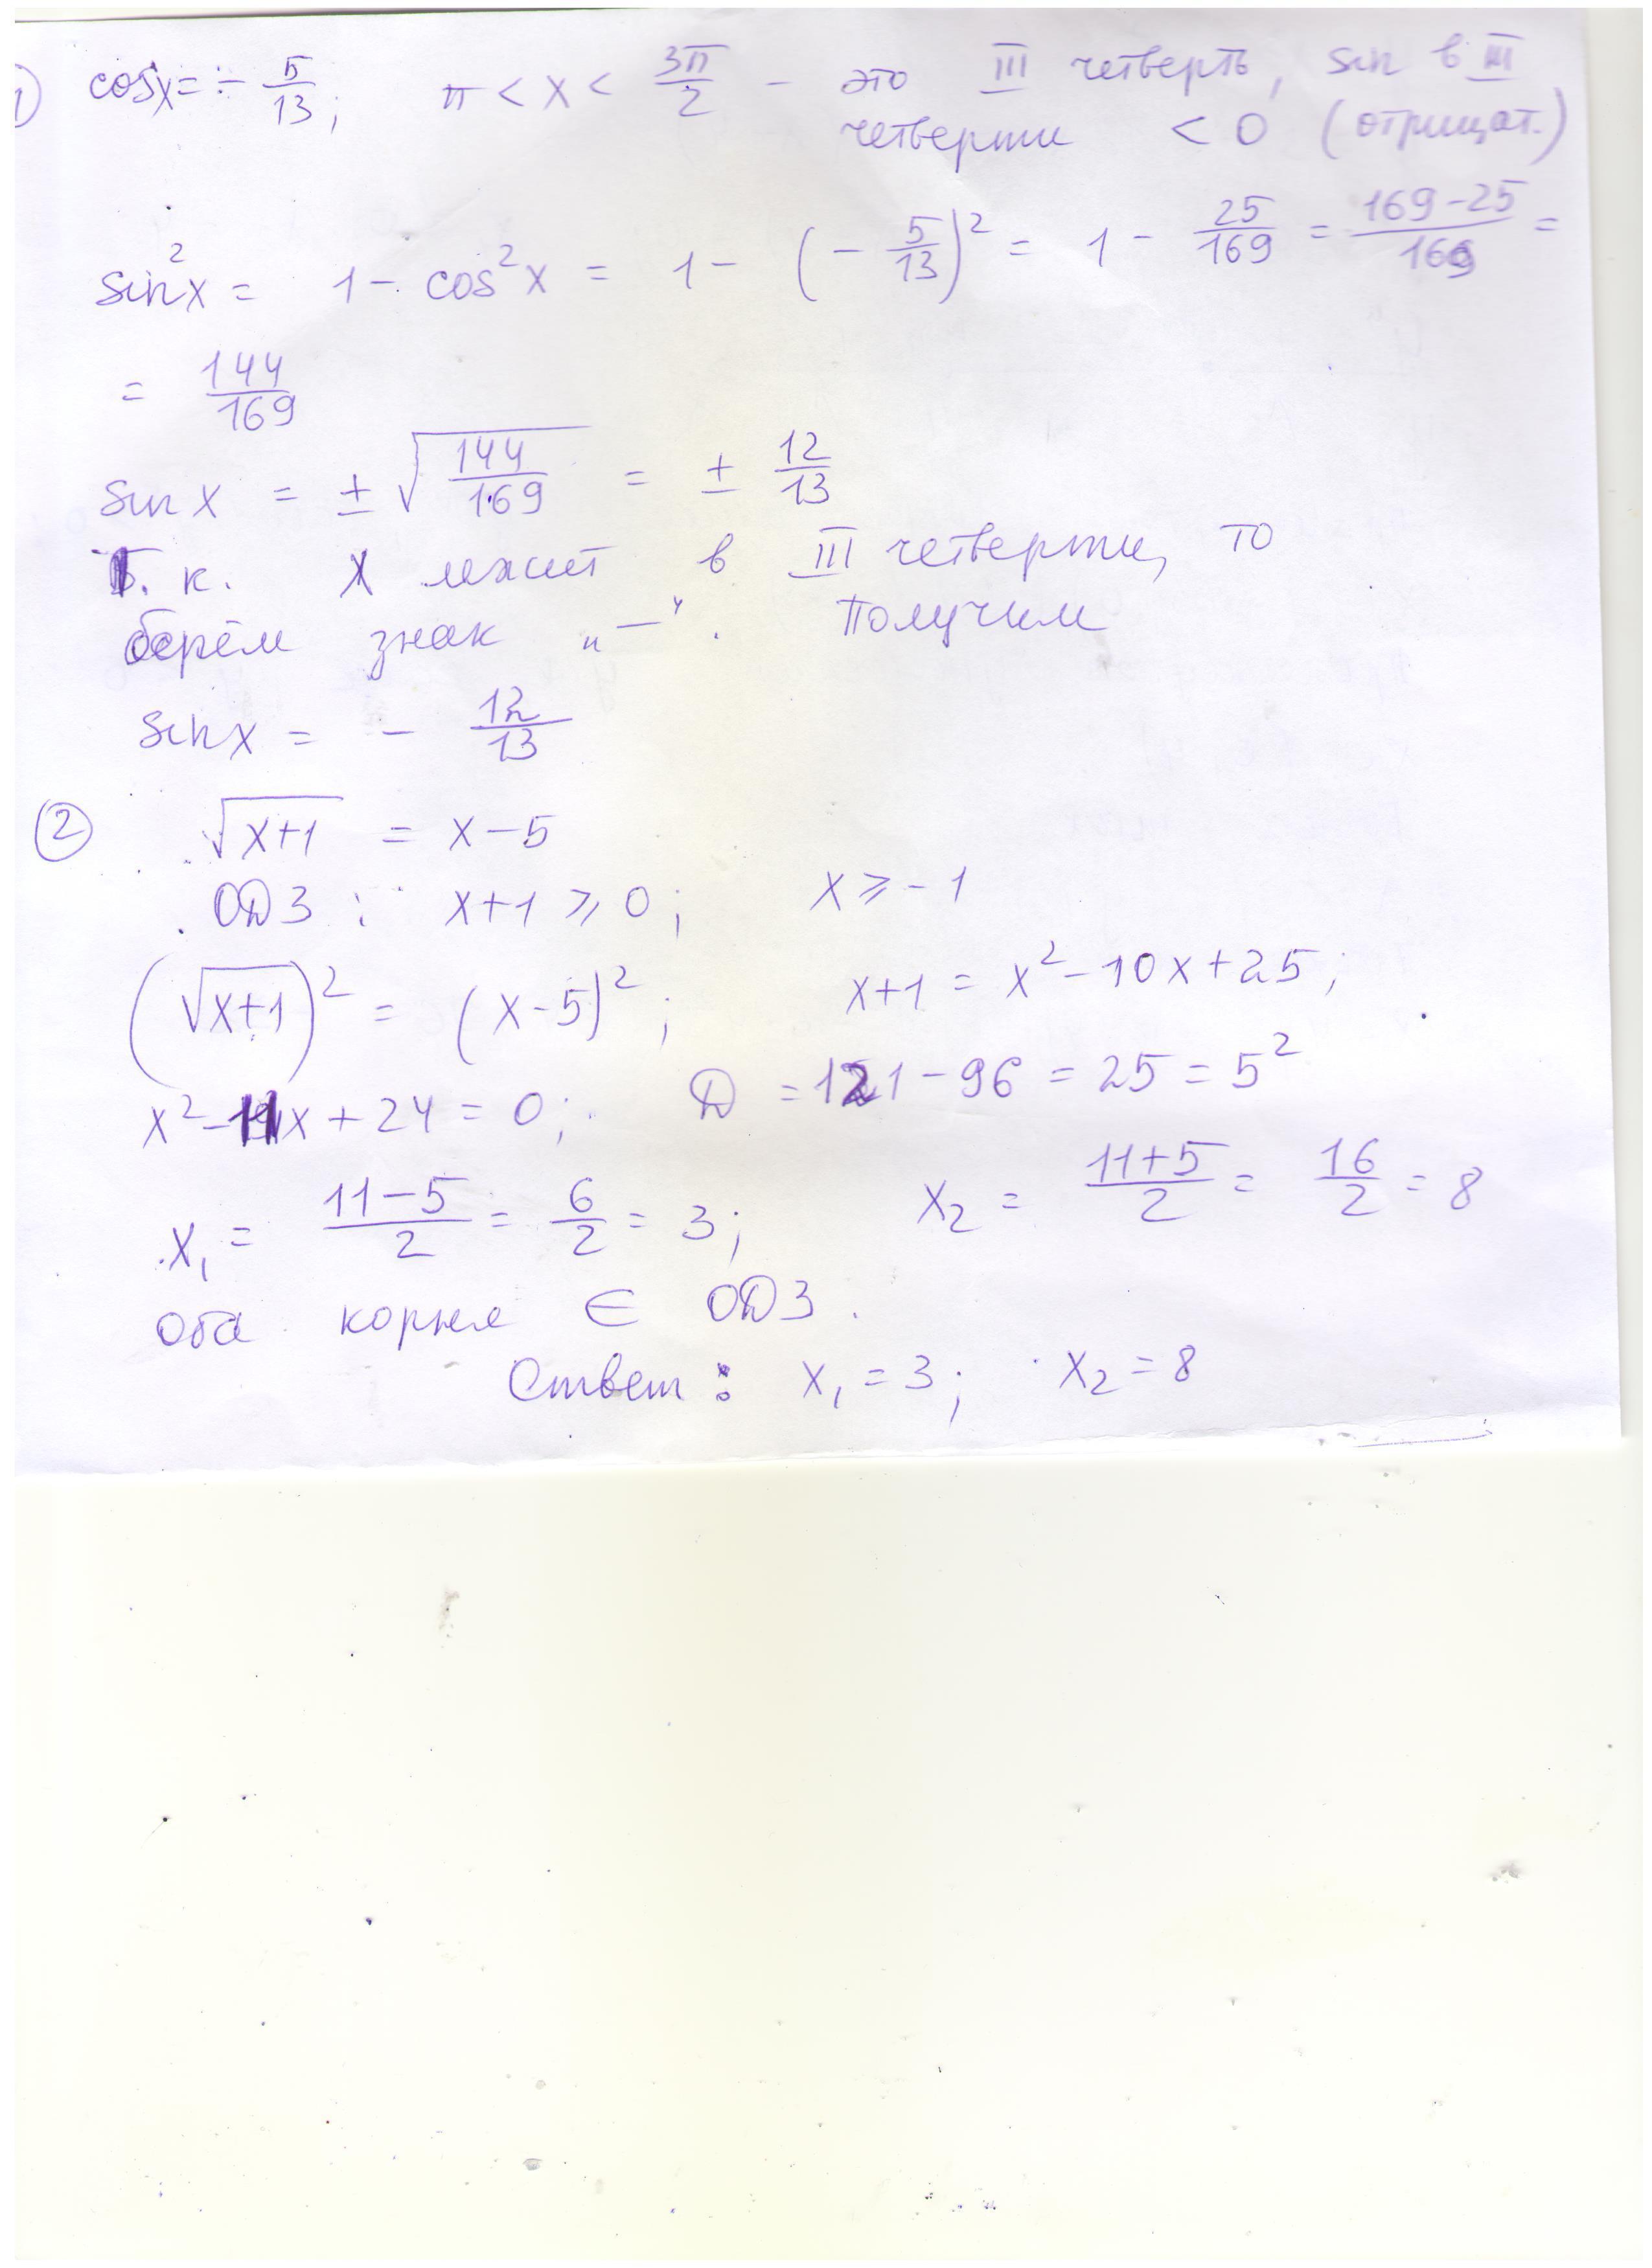 1) cosx = - 5/13; π < x < 3π/2 - это III четверть, sin в III
четверти < 0 (отрицат.)
sin²x = 1 - cos²x = 1 - (- 5/13)² = 1 - 25/169 = (169-25)/169 =
= 144/169
sin x = ± √(144/169) = ± 12/13
Т. к. x лежит в III четверти, то
берём знак „—“. Получим
sin x = - 12/13
② √(x+1) = x - 5
ОДЗ: x+1 ⩾ 0; x ⩾ -1
(√(x+1))² = (x-5)²; x+1 = x² - 10x + 25;
x² - 11x + 24 = 0; D = 121 - 96 = 25 = 5²
x₁ = (11-5)/2 = 6/2 = 3; x₂ = (11+5)/2 = 16/2 = 8
Оба корня ∈ ОДЗ.
Ответ: x₁ = 3; x₂ = 8